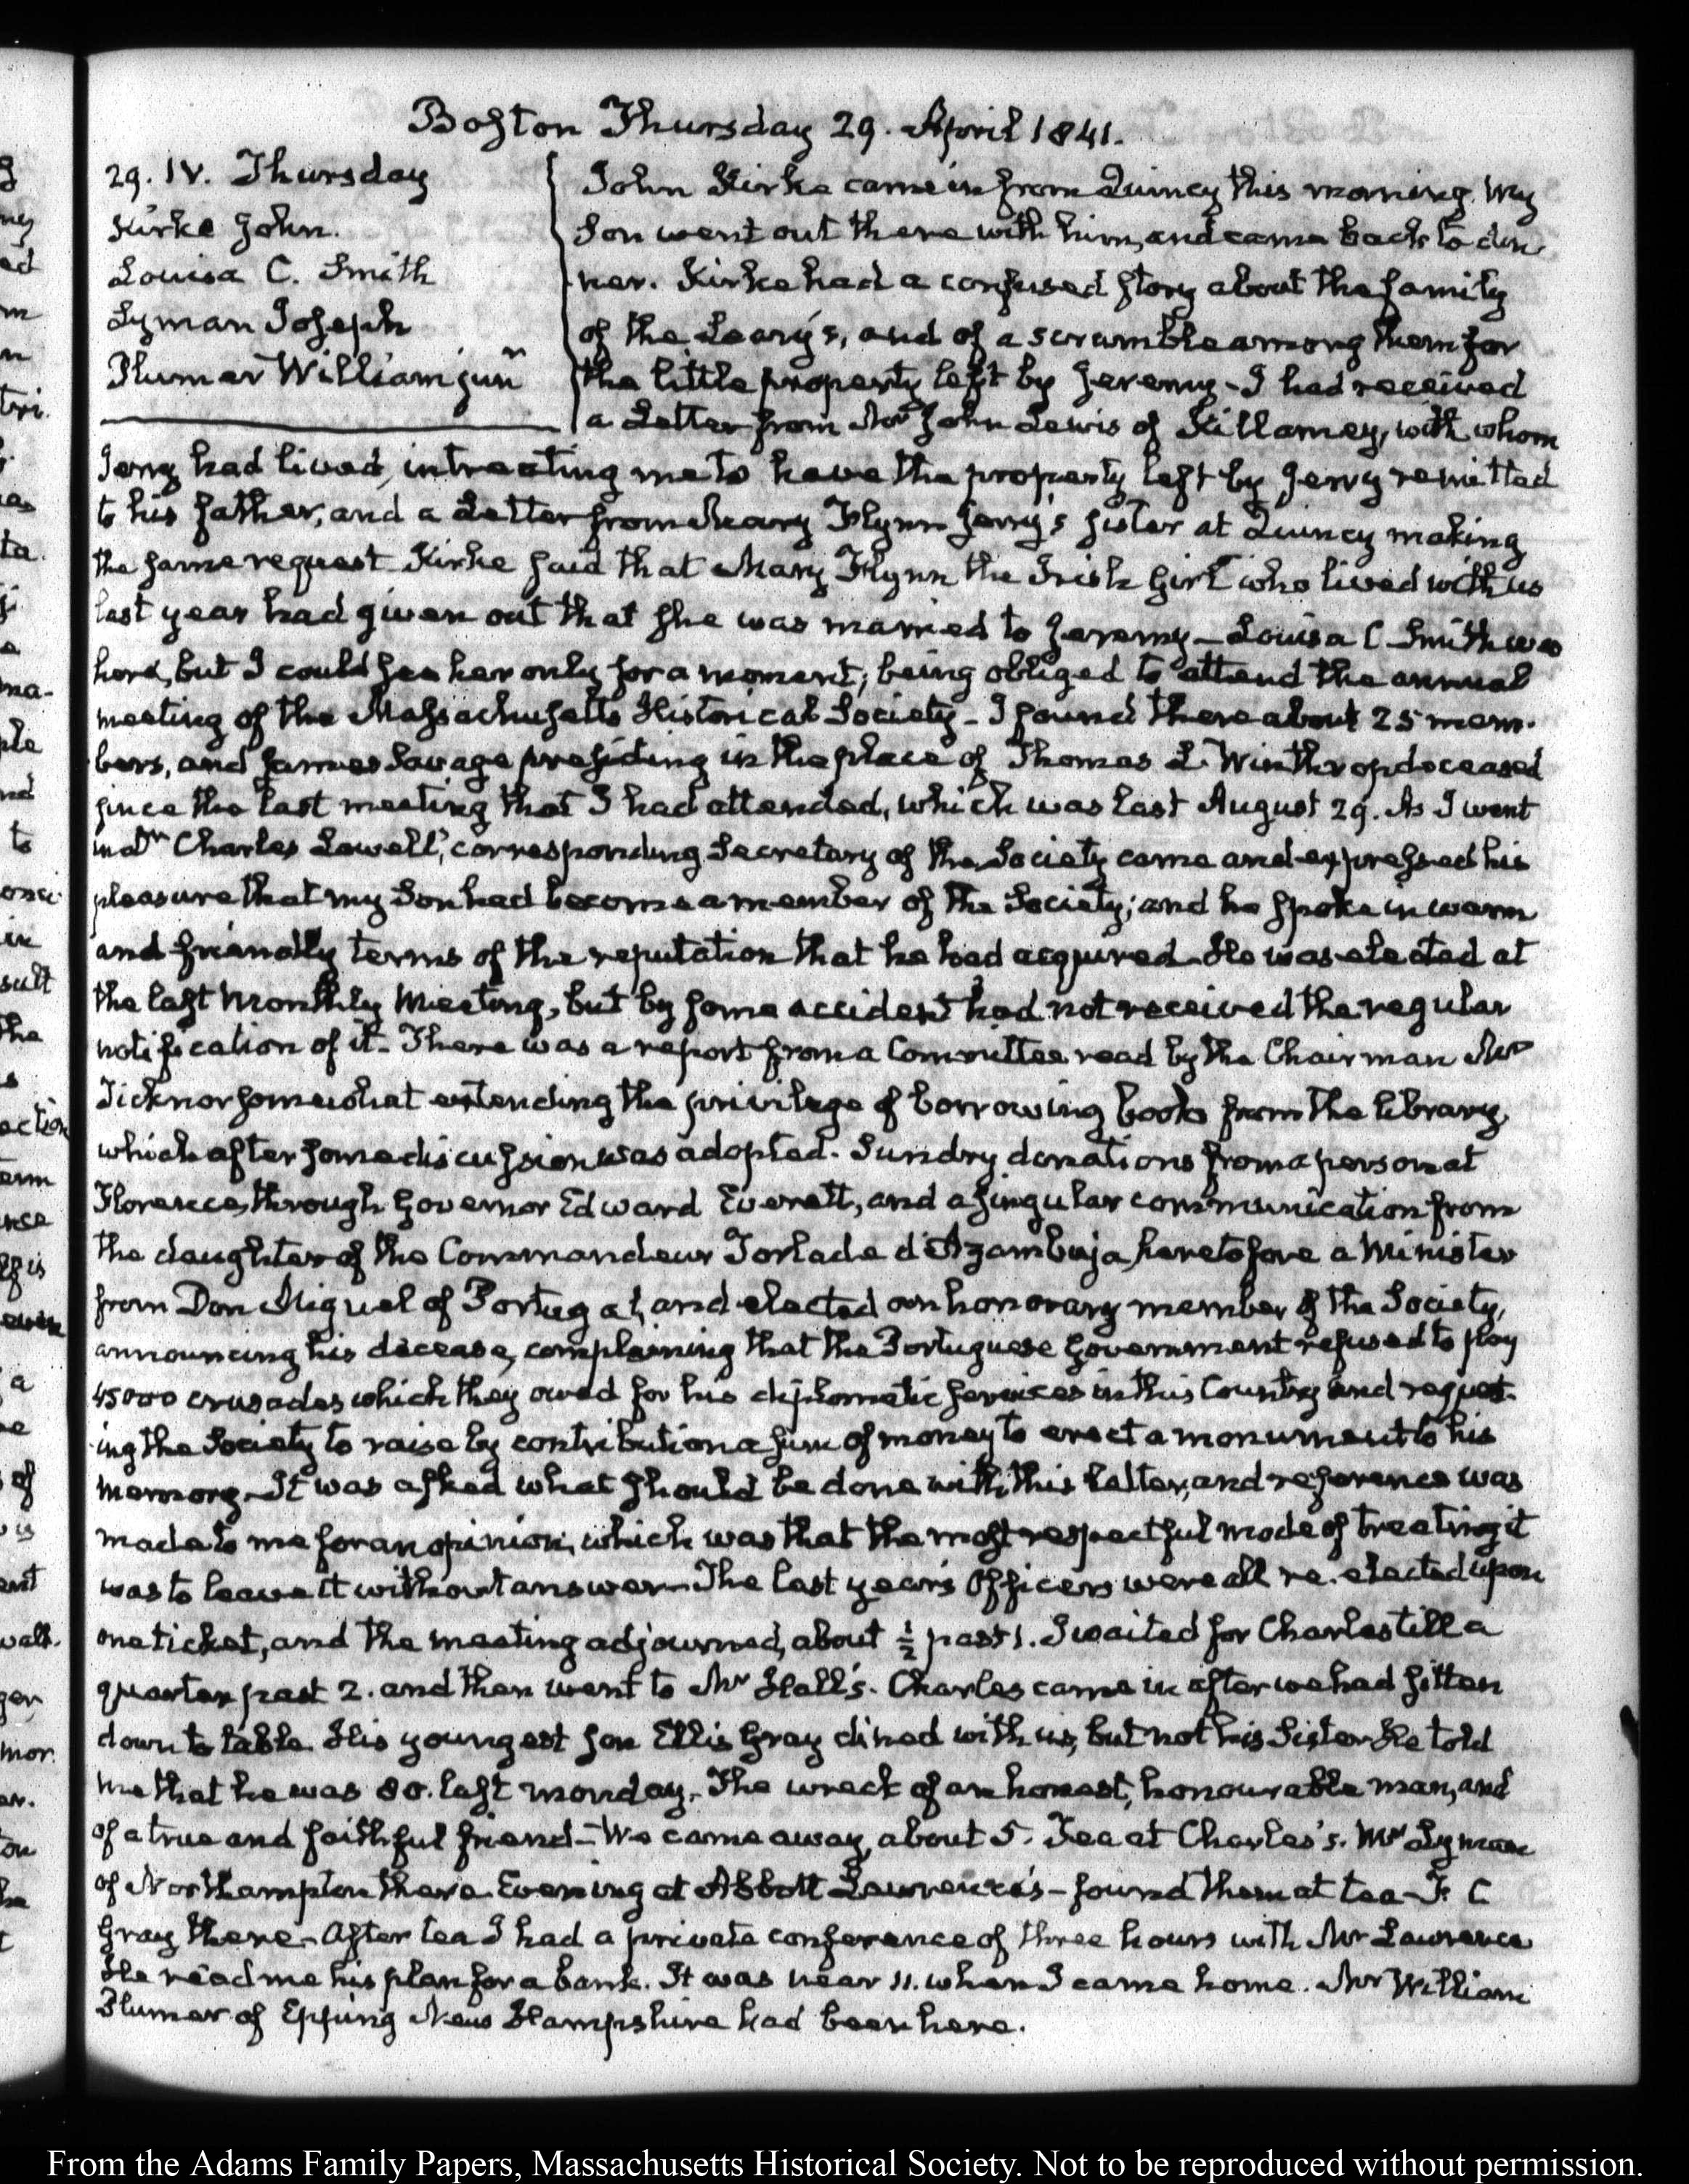 Boston Thursday 29. April 1841.
29. IV. Thursday
Kirke John.
Louisa C. Smith
Lyman Joseph
Plumer William junr
John Kirke came in from Quincy this morning. My
Son went out there with him, and came back to din
ner. Kirke had a confused story about the family
of the Leary's, and of a scramble among them for
the little property left by Jeremy - I had received
a Letter from Mr John Lewis of Killarney, with whom
Jerry had lived, intreating me to have the property left by Jerry remitted
to his father, and a Letter from Mary Flynn Jerry's sister at Quincy making
the same request Kirke said that Mary Flynn the Irish Girl who lived with us
last year had given out that she was married to Jeremy - Louisa C Smith was
here, but I could see her only for a moment; being obliged to attend the annual
meeting of the Massachusetts Historical Society - I found there about 25 mem-
bers, and James Savage presiding in the place of Thomas L. Winthrop deceased
since the last meeting that I had attended, which was last August 29. As I went
in Dr Charles Lowell, corresponding Secretary of the Society came and expressed his
pleasure that my Son had become a member of the Society; and he spoke in warm
and friendly terms of the reputation that he had acquired. He was elected at
the last Monthly Meeting, but by some accident had not received the regular
notification of it - There was a report from a Committee read by the Chairman Mr
Ticknor somewhat extending the privilege of borrowing books from the library,
which after some discussion was adopted. Sundry donations from a person at
Florence, through Governor Edward Everett, and a singular communication from
the daughter of the Commandeur Torlade d'Azambuja, heretofore a Minister
from Don Miguel of Portugal, and elected an honorary member of the Society,
announcing his decease, complaining that the Portuguese Government refused to pay
45000 crusades which they owed for his diplomatic services in this Country and request-
ing the Society to raise by contribution a sum of money to erect a monument to his
memory. It was asked what should be done with this letter, and reference was
made to me for an opinion, which was that the most respectful mode of treating it
was to leave it without answer - The last year's Officers were all re-elected upon
one ticket, and the meeting adjourned, about ½ past 1. I waited for Charles till a
quarter past 2. and then went to Mr Hall's. Charles came in after we had sitten
down to table. His youngest son Ellis Gray dined with us, but not his Sister He told
me that he was 80. last monday. The wreck of an honest, honourable man, and
of a true and faithful friend - We came away, about 5. Tea at Charles's. Mr Lyman
of Northampton there. Evening at Abbott Lawrence's - found them at tea - F. C
Gray there - After tea I had a private conference of three hours with Mr Lawrence
He read me his plan for a bank. It was near 11. when I came home. Mr William
Plumer of Epping New Hampshire had been here.
From the Adams Family Papers, Massachusetts Historical Society. Not to be reproduced without permission.